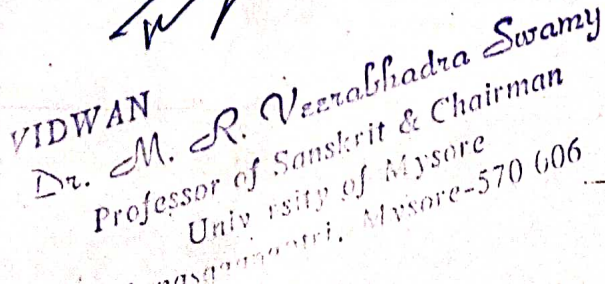 VIDWAN
Dr. M. R. Veerabhadra Swamy
Professor of Sanskrit & Chairman
Univ rsity of Mysore
Mysore-570 006